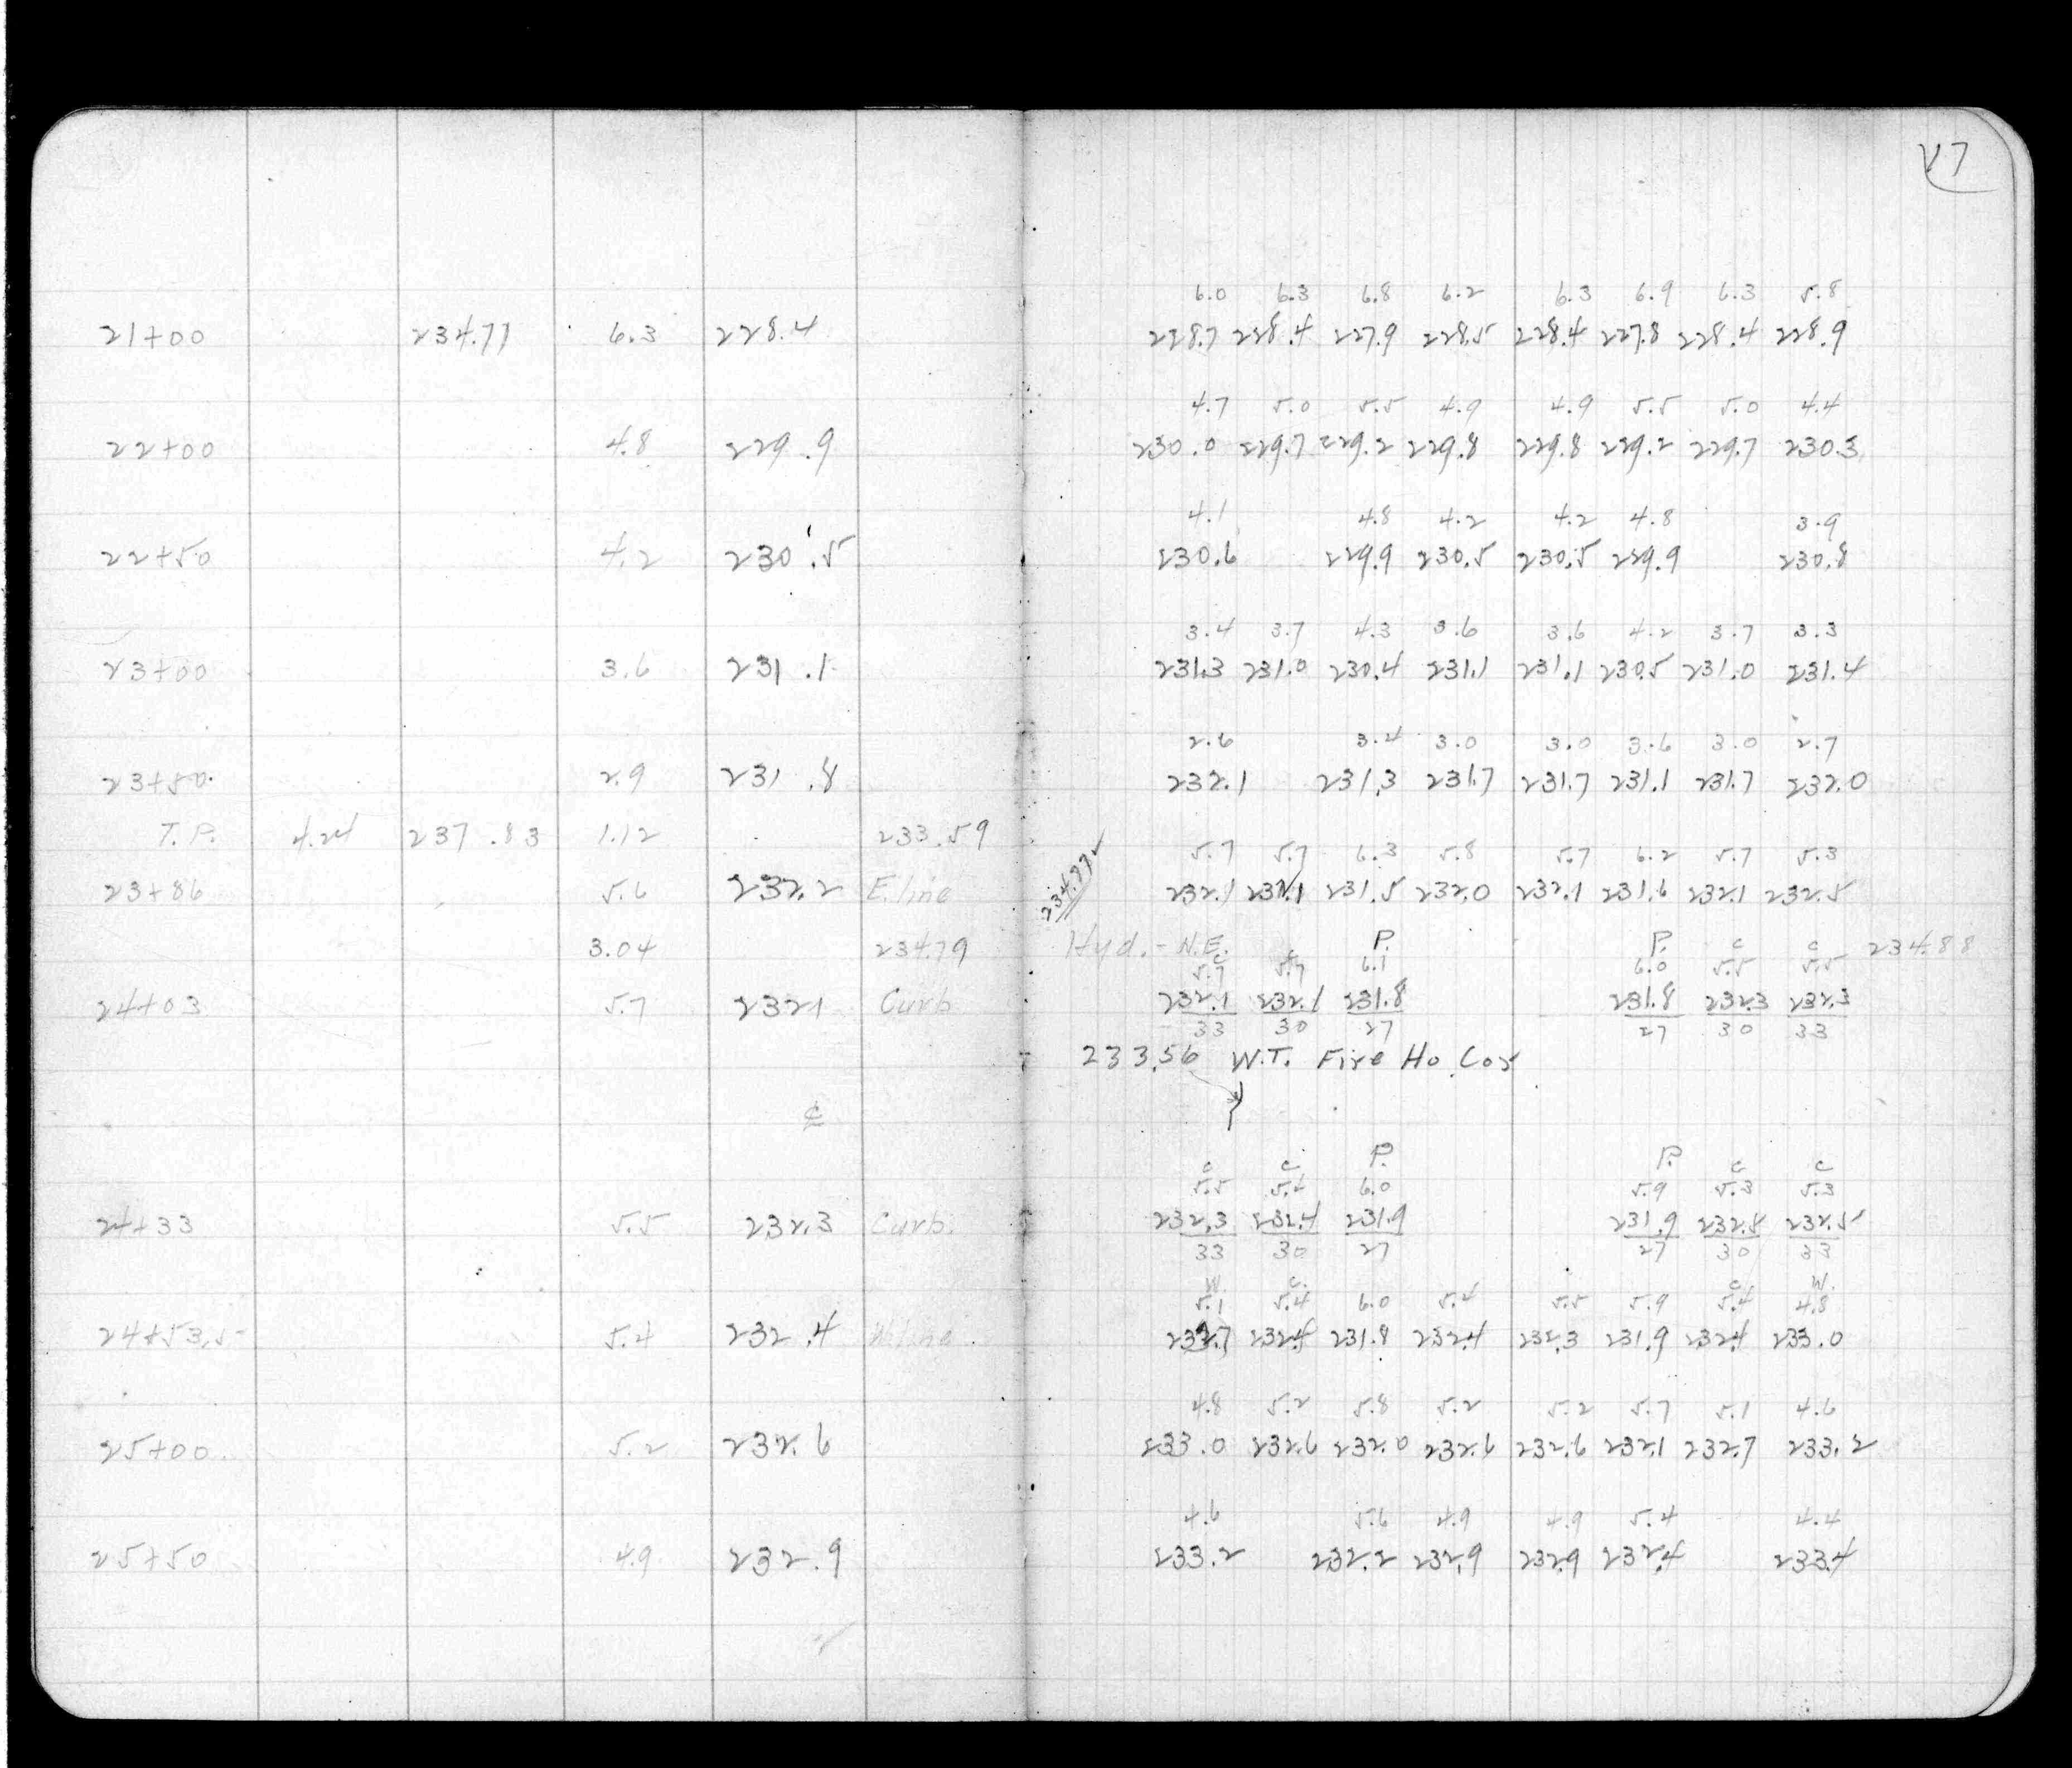 27
6.0 6.3 6.8 6.2 6.3 6.9 6.3 5.8
21+00 234.71 6.3 228.4 228.7 228.4 227.9 228.5 228.4 227.8 228.4 228.9
4.7 5.0 5.5 4.9 4.9 5.5 5.0 4.4
22+00 4.8 229.9 230.0 229.7 229.2 229.8 229.8 229.2 229.7 230.3
4.1 4.8 4.2 4.2 4.8 3.9
22+50 4.2 230.5 230.6 229.9 230.5 230.5 229.9 230.8
3.4 3.7 4.3 3.6 3.6 4.2 3.7 3.3
23+00 3.6 231.1 231.3 231.0 230.4 231.1 231.1 230.5 231.0 231.4
2.6 3.4 3.0 3.0 3.6 3.0 2.7
23+50 2.9 231.8 232.1 231.3 231.7 231.7 231.1 231.7 232.0
T.P. 4.24 237.83 1.12 233.59
5.7 5.7 6.3 5.8 5.7 6.2 5.7 5.3
23+86 5.6 232.2 E.line 232.1 232.1 231.5 232.0 232.1 231.6 232.1 232.5
3.04 234.79 Hyd.- N.E. P. P. c c 234.88
c c
5.7 5.7 6.1 6.0 5.5 5.5
24+03 5.7 232.1 Curb 232.1 232.1 231.8 231.8 232.3 232.3
33 30 27 27 30 33
233.56 W.T. Fire Ho. Cor
℄
P. P.
c c c c
5.5 5.4 6.0 5.9 5.3 5.3
24+33 5.5 232.3 Curb. 232.3 232.4 231.9 231.9 232.5 232.5
33 30 27 27 30 33
W. c. c W.
5.1 5.4 6.0 5.4 5.5 5.9 5.4 4.8
24+53.5 5.4 232.4 W.line 232.7 232.4 231.8 232.4 232.3 231.9 232.4 233.0
4.8 5.2 5.8 5.2 5.2 5.7 5.1 4.6
25+00 5.2 232.6 233.0 232.6 232.0 232.6 232.6 232.1 232.7 233.2
4.6 5.6 4.9 4.9 5.4 4.4
25+50 4.9 232.9 233.2 232.2 232.9 232.9 232.4 233.4